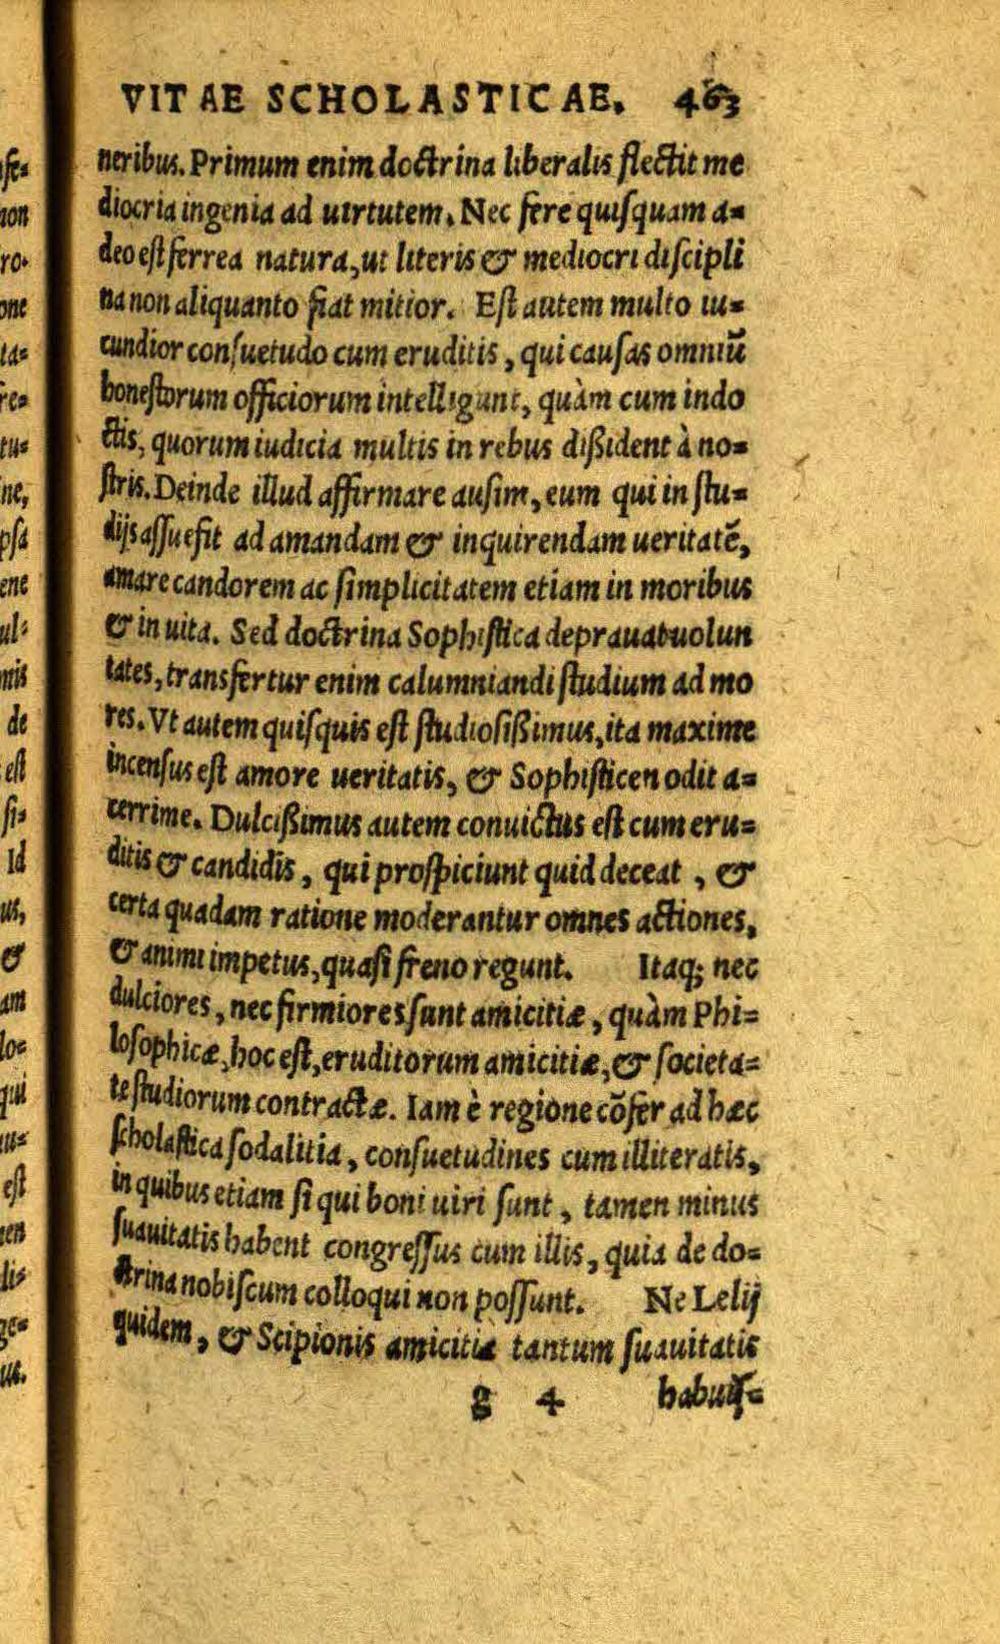 VITAE SCHOLASTICAE. 463
neribus. Primum enim doctrina liberalis flectit me
diocria ingenia ad uirtutem. Nec fere quiſquam a=
deo eſt ferrea natura, ut literis & mediocri diſcipli
na non aliquanto fiat mitior. Eſt autem multo iu=
cundior conſuetudo cum eruditis, qui cauſas omniũ
honeſtorum officiorum intelligunt, quàm cum indo
ctis, quorum iudicia multis in rebus dißident à no=
ſtris. Deinde illud affirmare auſim, eum qui in ſtu=
dijs aſſuefit ad amandam & inquirendam ueritatẽ,
amare candorem ac ſimplicitatem etiam in moribus
& in uita. Sed doctrina Sophiſtica deprauat uolun
tates, transfertur enim calumniandi ſtudium ad mo
res. Vt autem quiſquis eſt ſtudioſißimus, ita maxime
incenſus eſt amore ueritatis, & Sophiſticen odit a=
cerrime. Dulcißimus autem conuictus eſt cum eru=
ditis & candidis, qui proſpiciunt quid deceat, &
certa quadam ratione moderantur omnes actiones,
& animi impetus, quaſi freno regunt. Itaq; nec
dulciores, nec firmiores ſunt amicitiæ, quàm Phi=
loſophicæ, hoc eſt, eruditorum amicitiæ, & ſocieta=
te ſtudiorum contractæ. Iam è regione cõfer ad hæc
ſcholaſtica ſodalitia, conſuetudines cum illiteratis,
in quibus etiam ſi qui boni uiri ſunt, tamen minus
ſuauitatis habent congreſſus cum illis, quia de do=
ctrina nobiſcum colloqui non poſſunt. Ne Lelij
quidem, & Scipionis amicitia tantum ſuauitatis
g 4 habuiſ=